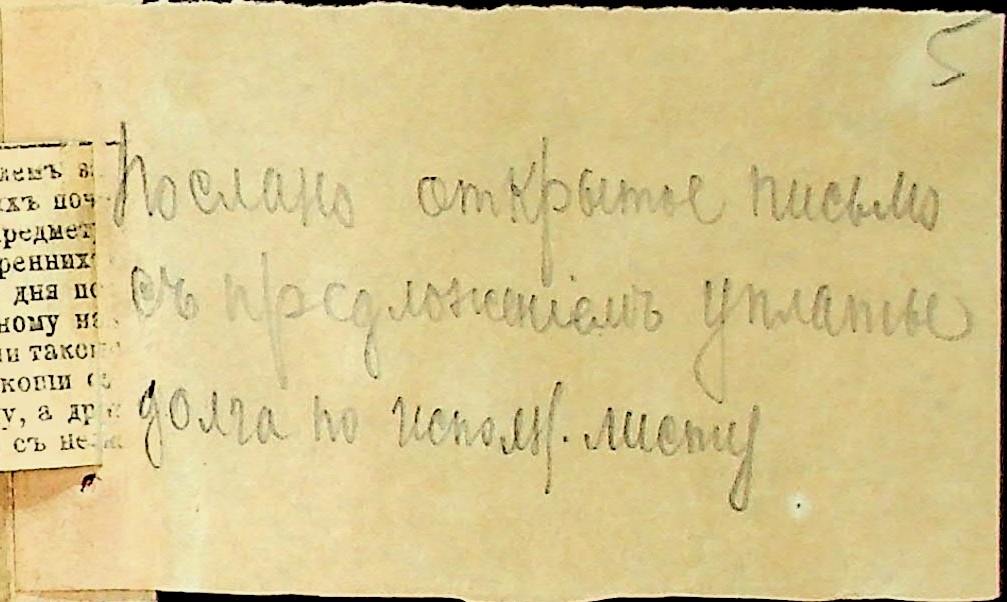 5
Послано открытое письмо
съ предложеніемъ уплаты
долга по исполн. листу
лемъ
ихъ поч
предмет
ренних
дня по
ному на
ии таком
копіи
у, а др
съ не